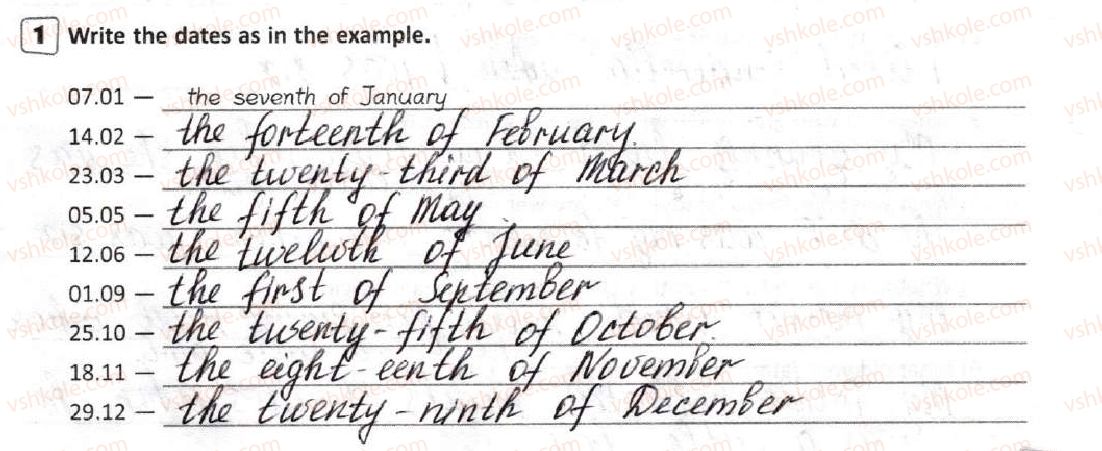 1 Write the dates as in the example.
07.01 — the seventh of January
14.02 — the forteenth of February.
23.03 — the twenty-third of March
05.05 — the fifth of May
12.06 — the twelwth of June
01.09 — the first of September
25.10 — the twenty-fifth of October.
18.11 — the eight-eenth of November
29.12 — the twenty-ninth of December
vshkole.com